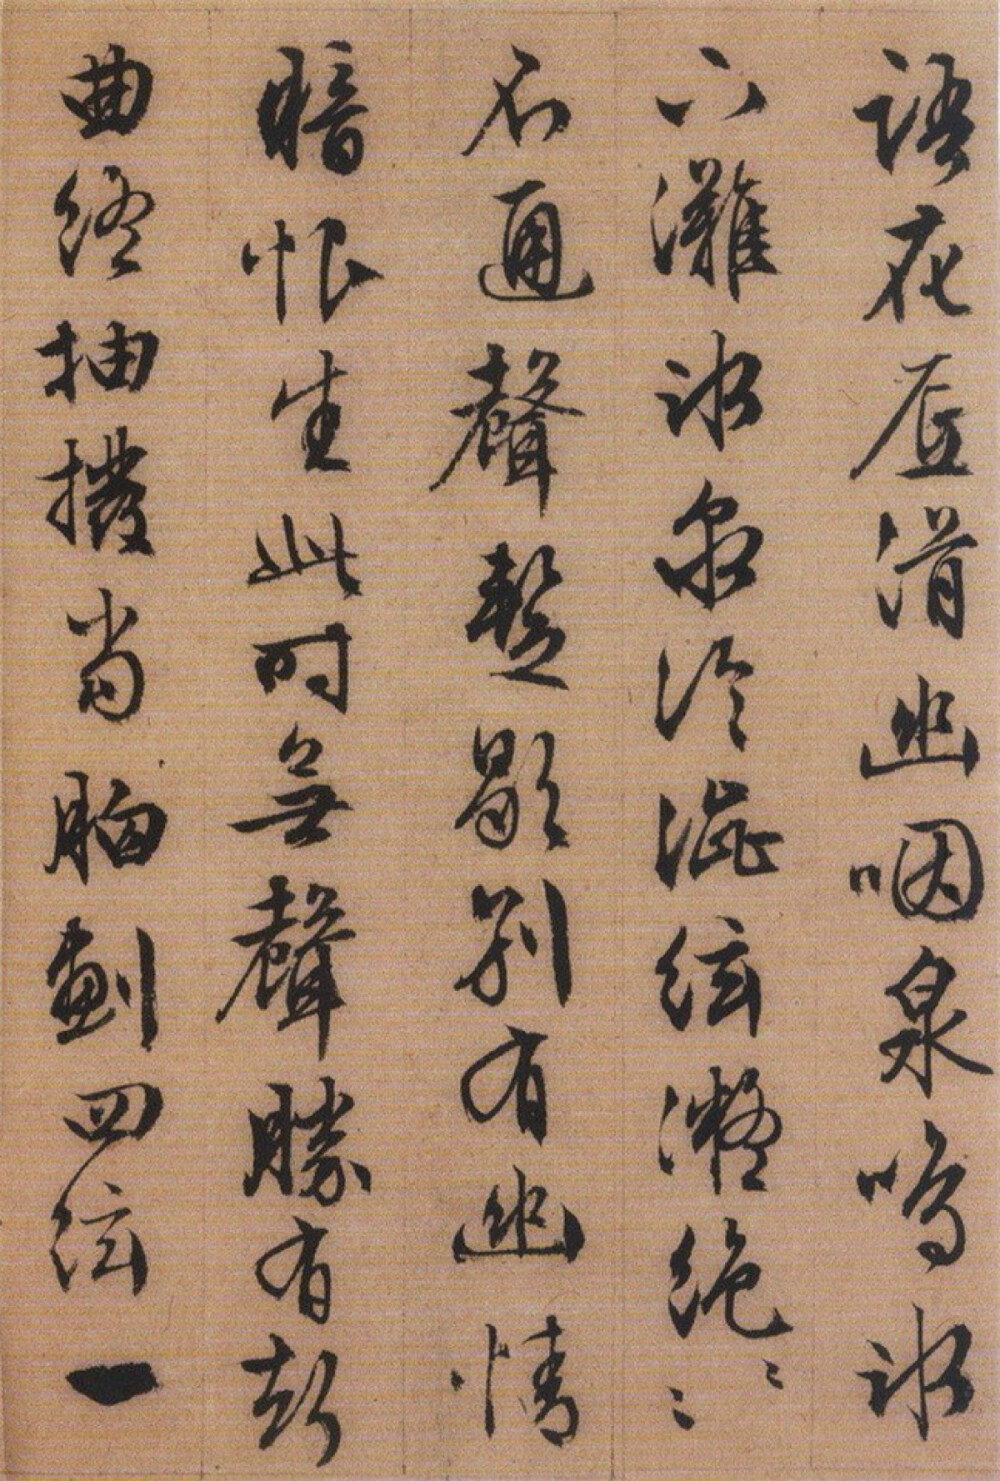 語花底滑幽咽泉鳴氷
下灘氷泉冷澀絃凝絶〻〻
不通聲暫歇別有幽情
暗恨生此時無聲勝有聲
曲終抽撥當胸劃四絃一